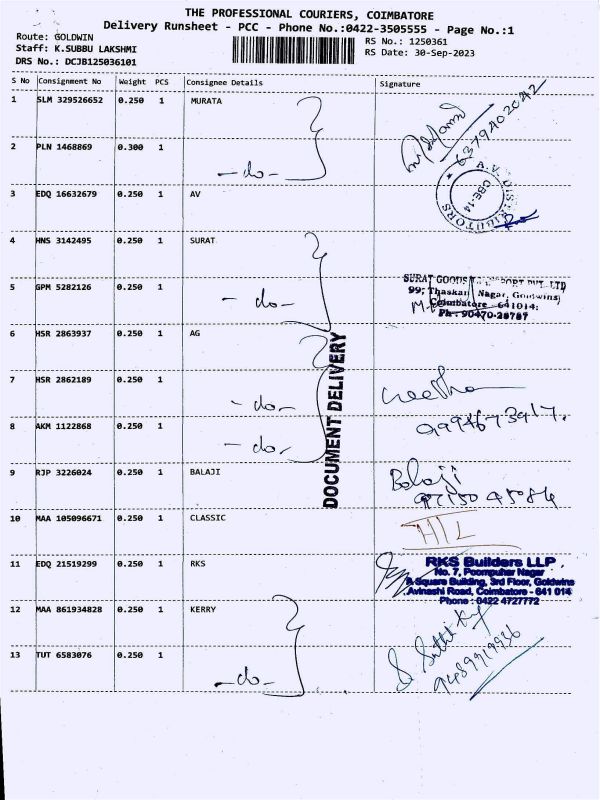 THE PROFESSIONAL COURIERS, COIMBATORE
Delivery Runsheet - PCC - Phone No.:0422-3505555 - Page No.:1
Route: GOLDWIN
Staff: K.SUBBU LAKSHMI
DRS No.: DCJB125036101
RS No.: 1250361
RS Date: 30-Sep-2023
S No Consignment No Weight PCS Consignee Details Signature
1 SLM 329526652 0.250 1 MURATA
6379402042
2 PLN 1468869 0.300 1 -do-
3 EDQ 16632679 0.250 1 AV
A.V. DISTRIBUTORS
CBE-14
4 HNS 3142495 0.250 1 SURAT
5 GPM 5282126 0.250 1 -do-
SURAT GOODS PORT PVT. LTD
99, Thaskar Nagar, Goldwins
Coimbatore - 641014.
Ph : 90470-28787
6 HSR 2863937 0.250 1 AG
7 HSR 2862189 0.250 1 -do- Geetha
8 AKM 1122868 0.250 1 -do- 9994673917.
DOCUMENT DELIVERY
9 RJP 3226024 0.250 1 BALAJI Balaji
97150 45084
10 MAA 105096671 0.250 1 CLASSIC HTL
11 EDQ 21519299 0.250 1 RKS
RKS Builders LLP
No. 7, Poompuhar Nagar
A Square Building, 3rd Floor, Goldwins
Avinashi Road, Coimbatore - 641 014
Phone : 0422 4727772
12 MAA 861934828 0.250 1 KERRY
13 TUT 6583076 0.250 1 -do-
9489919936